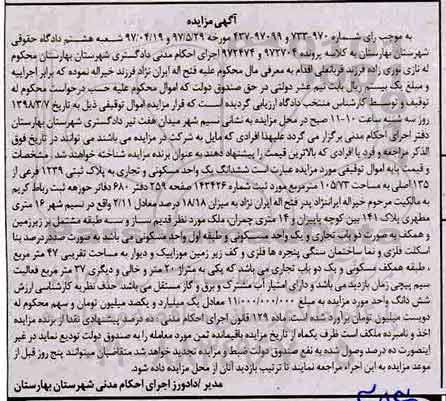 آگهی مزایده
به موجب رای شماره ۹۷۰-۷۳۳ و ۹۷۰۹۹-۴۳۷ مورخه ۹۷/۵/۲۹ و ۹۷/۰۴/۱۹ شعبه هشتم دادگاه حقوقی
شهرستان بهارستان به کلاسه پرونده ۹۷۲۷۰۴ و ۹۷۲۴۷۴ اجرای احکام مدنی دادگستری شهرستان بهارستان محکوم
له نازی نوری زاده فرزند قربانعلی اقدام به معرفی مال محکوم علیه فتح اله ایران نژاد فرزند خیراله نموده که برابر اجراییه
و مبلغ یک بیستم ریال بابت نیم عشر دولتی در حق صندوق دولت که اموال محکوم علیه حسب درخواست محکوم له
توقیف و توسط کارشناس منتخب دادگاه ارزیابی گردیده است که قرار مزایده اموال توقیفی ذیل به تاریخ ۱۳۹۸/۳/۷
روز سه شنبه ساعت ۱۰-۱۱ صبح در محل مزایده به نشانی نسیم شهر میدان هفت تیر دادگستری شهرستان بهارستان
دفتر اجرای احکام مدنی برگزار می گردد علیهذا افرادی که مایل به شرکت در مزایده می باشند می توانند در تاریخ فوق
الذکر مراجعه و فرد یا افرادی که بالاترین قیمت را پیشنهاد دهند به عنوان برنده مزایده شناخته خواهند شد. مشخصات
و قیمت پایه اموال توقیفی مورد مزایده عبارت است ششدانگ یک واحد مسکونی و تجاری به پلاک ثبتی ۱۲۳۹ فرعی از
۱۳۵ اصلی به مساحت ۱۰۵/۷۳ مترمربع مورد ثبت شماره ۱۴۲۴۲۶ صفحه ۲۵۹ دفتر ۶۸۰ دفتر حوزهه ثبت رباط کریم
به مالکیت مرحوم خیراله ایرانژاد پدر فتح اله ایران نژاد به میزان ۱۸/۱۸ درصد معادل ۲/۱۱ واقع در نسیم شهر ۱۶ متری
مطهری پلاک ۱۴۱ بین کوچه پاییزان و ۱۴ متری چمران، ملک مورد نظر قدیم ساز و سه طبقه مشتمل بر زیرزمین
و همکف به صورت دو باب تجاری و یک واحد مسکونی و طبقه اول واحد مسکونی می باشد به صورت صددرصد بنا
اسکلت فلزی و نما ساختمان سنگی پنجره ها فلزی و کف زیر زمین موزاییک و دیوار به مساحت تقریبی ۴۷ متر مربع
، طبقه همکف مسکونی و یک دو باب تجاری می باشد که یکی به متراژ ۲۰ متر و خالی و دیگری ۲۷ متر مربع فعالیت
سیم پیچی زمان بازدید می باشد و دارای امتیاز آب مشترک و برق و گاز مستقل می باشد. حذف نظریه کارشناسی ارزش
شش دانگ واحد مورد مزایده به مبلغ ۱۱/۰۰۰/۰۰۰/۰۰۰ معادل یک میلیارد و یکصد میلیون تومان و سهم محکوم له
دویست میلیون تومان برآورد شده است. ماده ۱۲۹ قانون اجرای احکام مدنی- ده درصد پیشنهادی نقدا از برنده مزایده
اخذ و نامبرده ملکف است ظرف یکماه از تاریخ مزایده باقیمانده ثمن مورد معامله را به صندوق دولت تودیع نماید در غیر
اینصورت ده درصد وصول شده به نفع صندوق دولت ضبط و مزایده تجدید خواهد شد متقاضیان میتوانند پنج روز قبل از
موعد مزایده به این اجراء مراجعه نمایند تا ترتیب بازدید آنان از محل مزایده داده شود.
مدیر /دادورز اجرای احکام مدنی شهرستان بهارستان